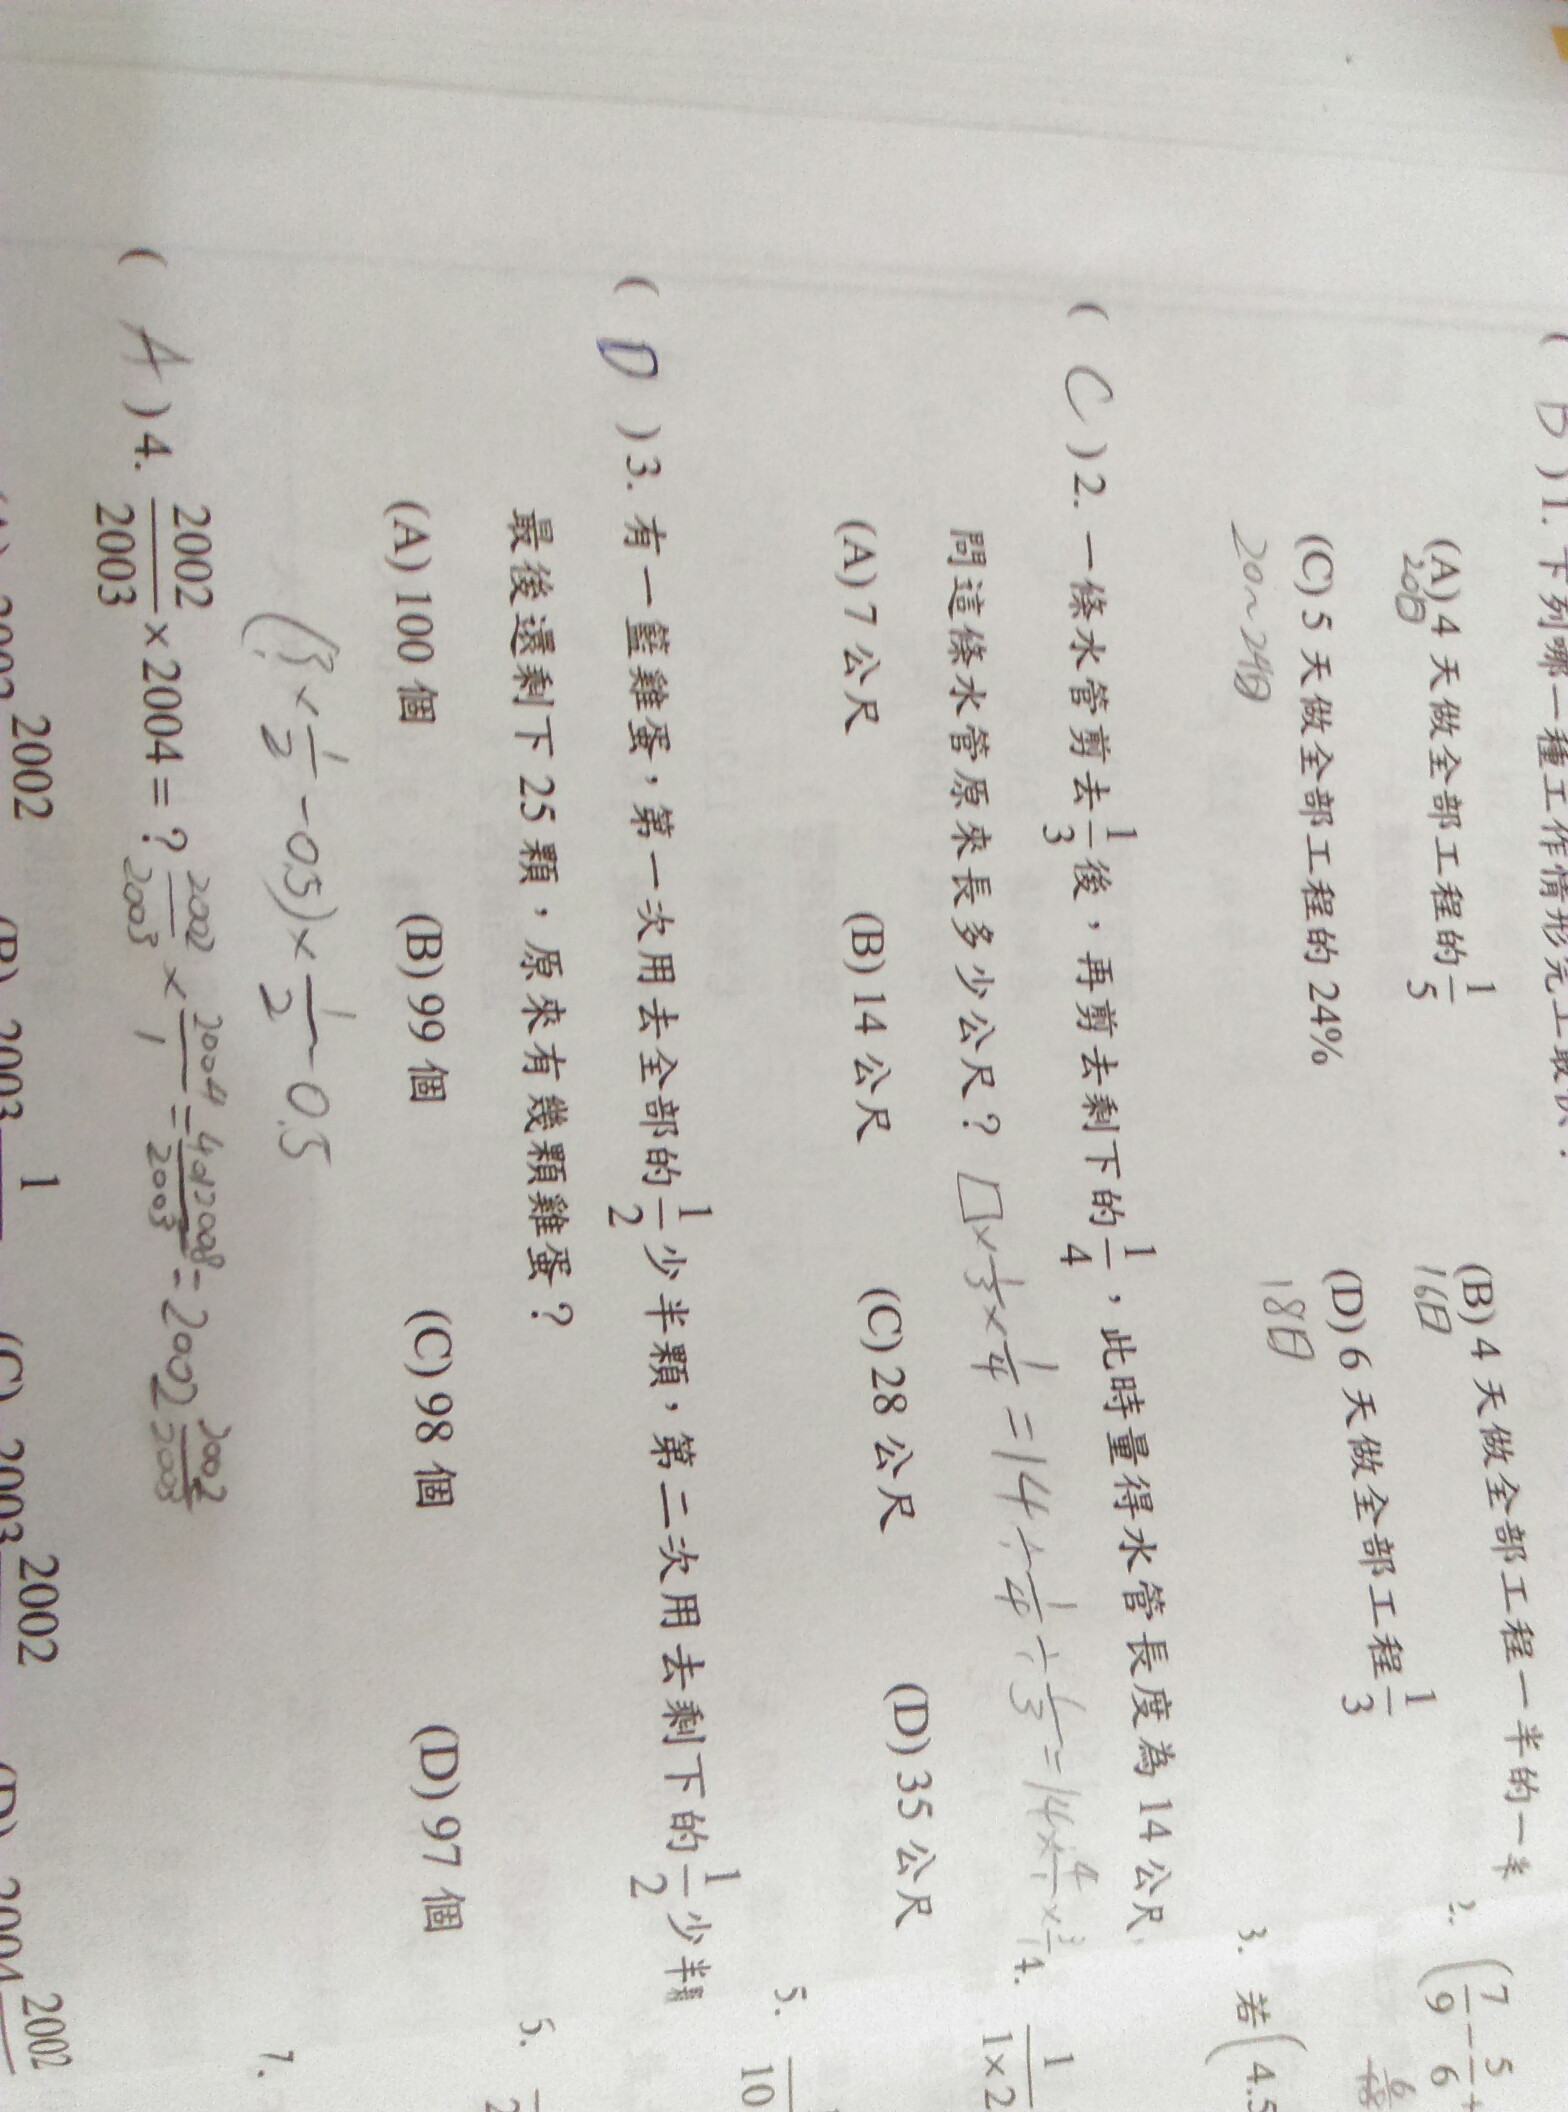 ( D ) 1. 下列哪一種工作情形完工最快?
(A) 4 天做全部工程的 1/5
(B) 4 天做全部工程一半的一半
20日
16日
(C) 5 天做全部工程的 24%
(D) 6 天做全部工程 1/3
20~24日
18日
( C ) 2. 一條水管剪去 1/3 後,再剪去剩下的 1/4,此時量得水管長度為 14 公尺,
問這條水管原來長多少公尺? □×1/3×1/4=14÷1/4÷1/3=14×4/1×3/1
(A) 7 公尺 (B) 14 公尺 (C) 28 公尺 (D) 35 公尺
( D ) 3. 有一籃雞蛋,第一次用去全部的 1/2 少半顆,第二次用去剩下的 1/2 少半顆
最後還剩下 25 顆,原來有幾顆雞蛋?
(A) 100 個 (B) 99 個 (C) 98 個 (D) 97 個
×1/2-0.5)×1/2-0.5
( A ) 4. 2002/2003 ×2004=? 2002/2003 × 2004/1 = 4012008/2003 = 2002 2002/2003
(A) 2002 2002 (B) 2003 1 (C) 2003 2002 (D) 2004 2002
2. (7/9-5/6+
3. 若(4.5
4. 1/1×2
5. 10
5. 2
7.